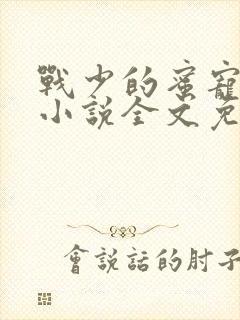 戰少的蜜寵
小說全文免
會說話的肘子